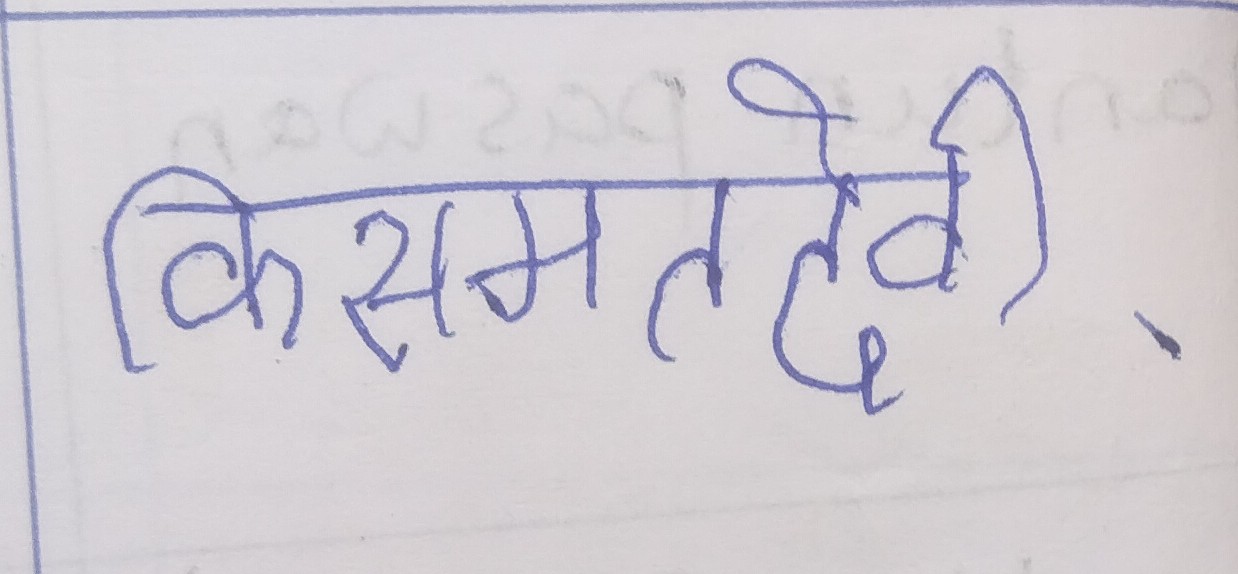 किसमत देवी